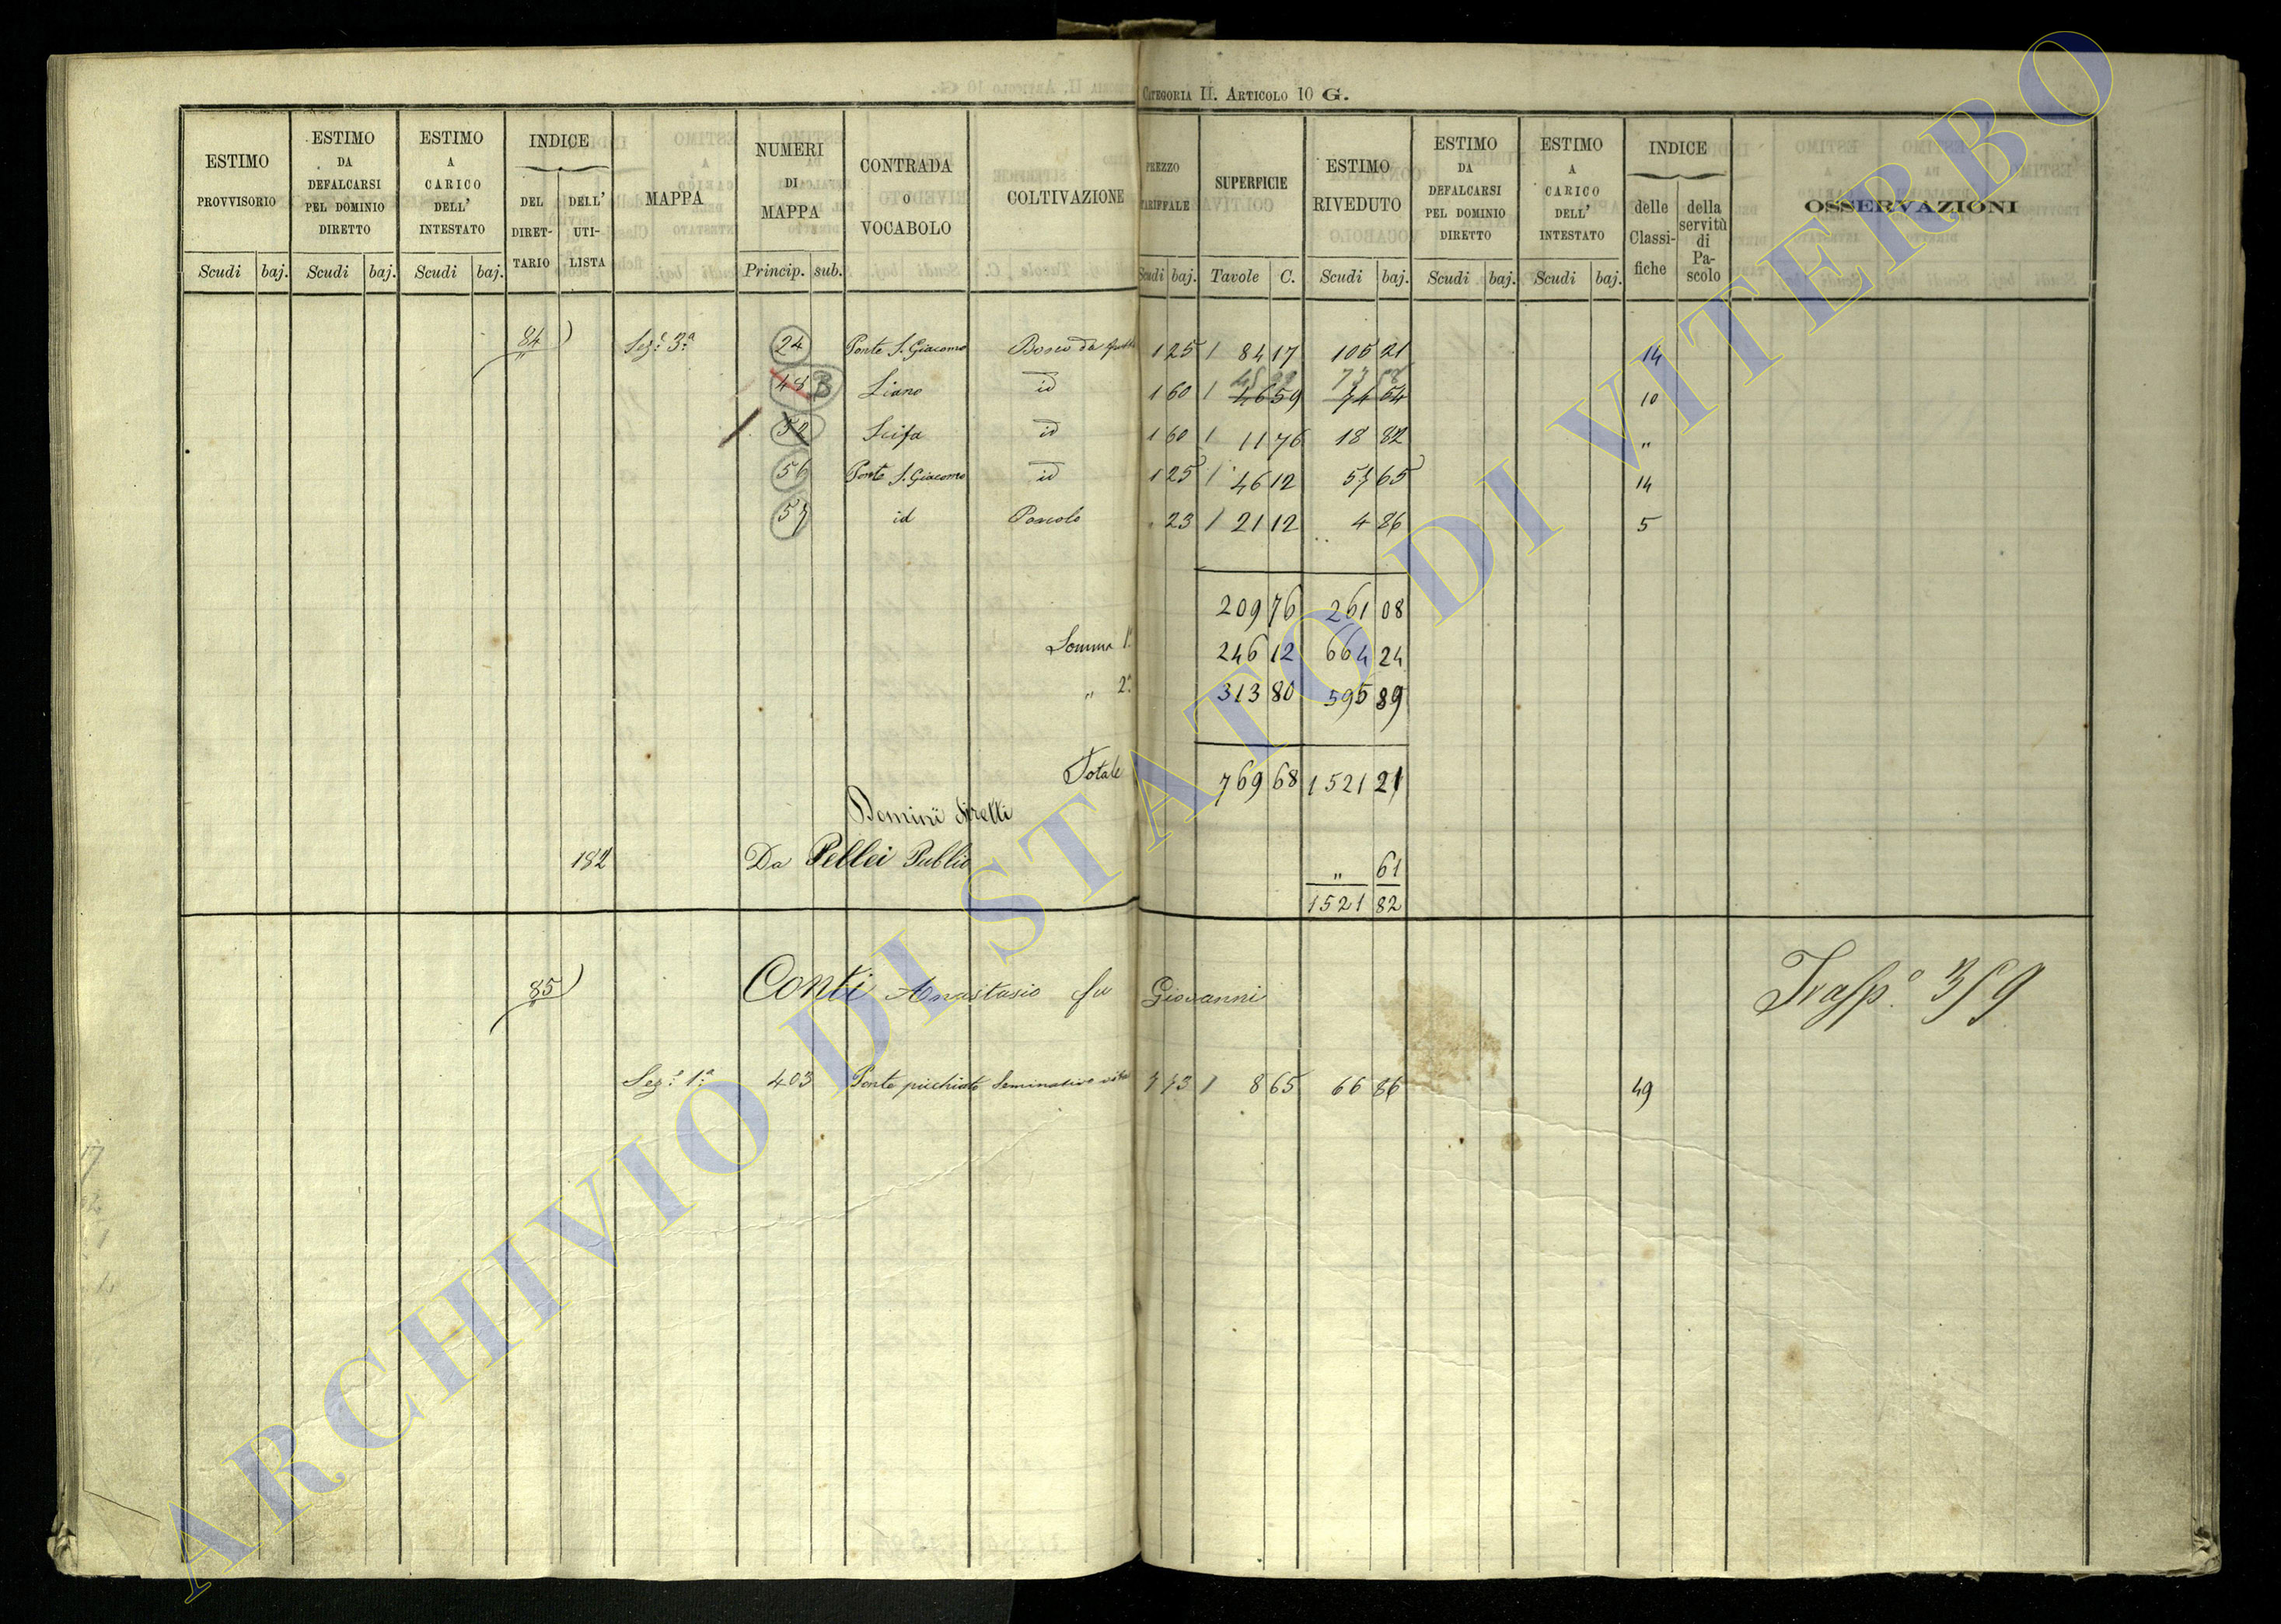 CATEGORIA II. ARTICOLO 10 G.
ESTIMO PROVVISORIO Scudi baj.
ESTIMO DA DEFALCARSI PEL DOMINIO DIRETTO Scudi baj.
ESTIMO A CARICO DELL' INTESTATO Scudi baj.
INDICE DEL DIRETTARIO DELL' UTILISTA
MAPPA
NUMERI DI MAPPA Princip. sub.
CONTRADA O VOCABOLO
COLTIVAZIONE
PREZZO TARIFFALE Scudi baj.
SUPERFICIE Tavole C.
ESTIMO RIVEDUTO Scudi baj.
ESTIMO DA DEFALCARSI PEL DOMINIO DIRETTO Scudi baj.
ESTIMO A CARICO DELL' INTESTATO Scudi baj.
INDICE delle Classifiche della servitù di Pascolo
OSSERVAZIONI
84) Sez.e 3.a 24 Ponte S. Giacomo Bosco da 1 25 / 84 17 105 21 14
48 B Liano id 1 60 / 46 59 74 54 10
52 Scifa id 1 60 / 11 76 18 82 "
56 Ponte S. Giacomo id 1 25 / 46 12 57 65 14
57 id Pascolo 23 / 21 12 4 86 5
209 76 261 08
Somma 1a 246 12 664 24
" 2a 313 80 595 89
Totale 769 68 1521 21
Dominii diretti
182 Da Pellei Publio " 61
1521 82
85) Conti Anastasio fu Giovanni
Sez.e 1.a 403 Ponte picchiato Seminativo 7 73 / 8 65 66 86 49
ARCHIVIO DI STATO DI VITERBO